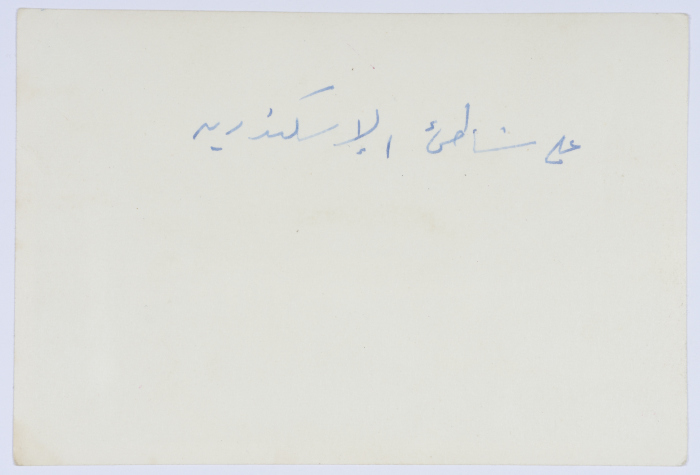 على شاطئ الإسكندرية